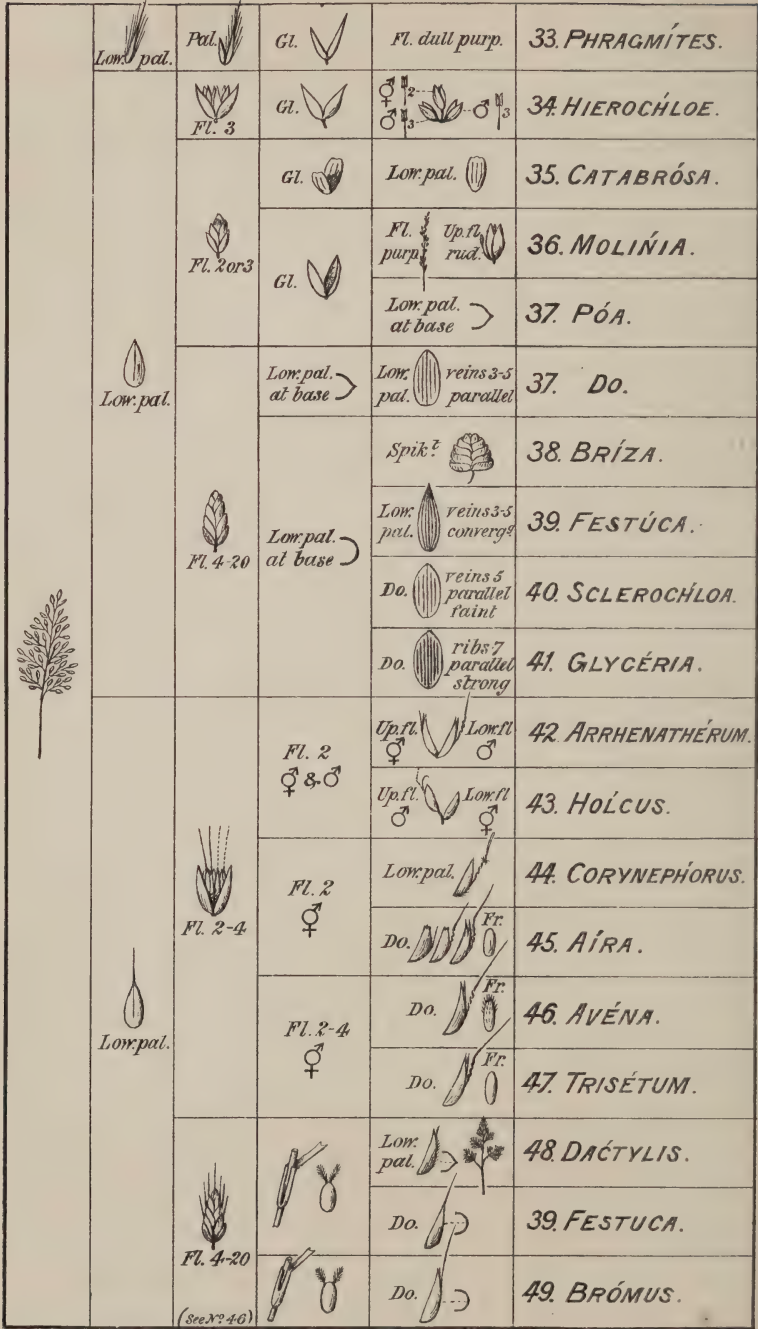 Low. pal.
Pal.
Gl.
Fl. dull purp.
33. PHRAGMÍTES.
Fl. 3
Gl.
⚥ 2
♂ 3
♂ 3
34. HIEROCHLOE.
Gl.
Low. pal.
35. CATABRÓSA.
Fl. 2 or 3
Gl.
Fl. purp.
Up. fl. rud.
36. MOLIŃIA.
Low. pal.
at base
37. PÓA.
Low. pal.
Low. pal.
at base
Low. pal.
veins 3-5
parallel
37. DO.
Fl. 4-20
Low. pal.
at base
Spikᵗ.
38. BRÍZA.
Low. pal.
veins 3-5
convergᵍ
39. FESTÚCA.
Do.
veins 5
parallel
faint
40. SCLEROCHĹOA.
Do.
ribs 7
parallel
strong
41. GLYCÉRIA.
Low. pal.
Fl. 2-4
Fl. 2
⚥ & ♂
Up. fl.
⚥
Low. fl
♂
42 ARRHENATHÉRUM.
Up. fl.
♂
Low. fl
⚥
43. HOĹCUS.
Fl. 2
⚥
Low. pal.
44. CORYNEPH́ORUS.
Do.
Fr.
45. AÍRA.
Fl. 2-4
⚥
Do.
Fr.
46. AVÉNA.
Do.
Fr.
47. TRISÉTUM.
Fl. 4-20
(See Nº 46)
Low. pal.
48. DAĆTYLIS.
Do.
39. FESTUCA.
Do.
49. BRÓMUS.